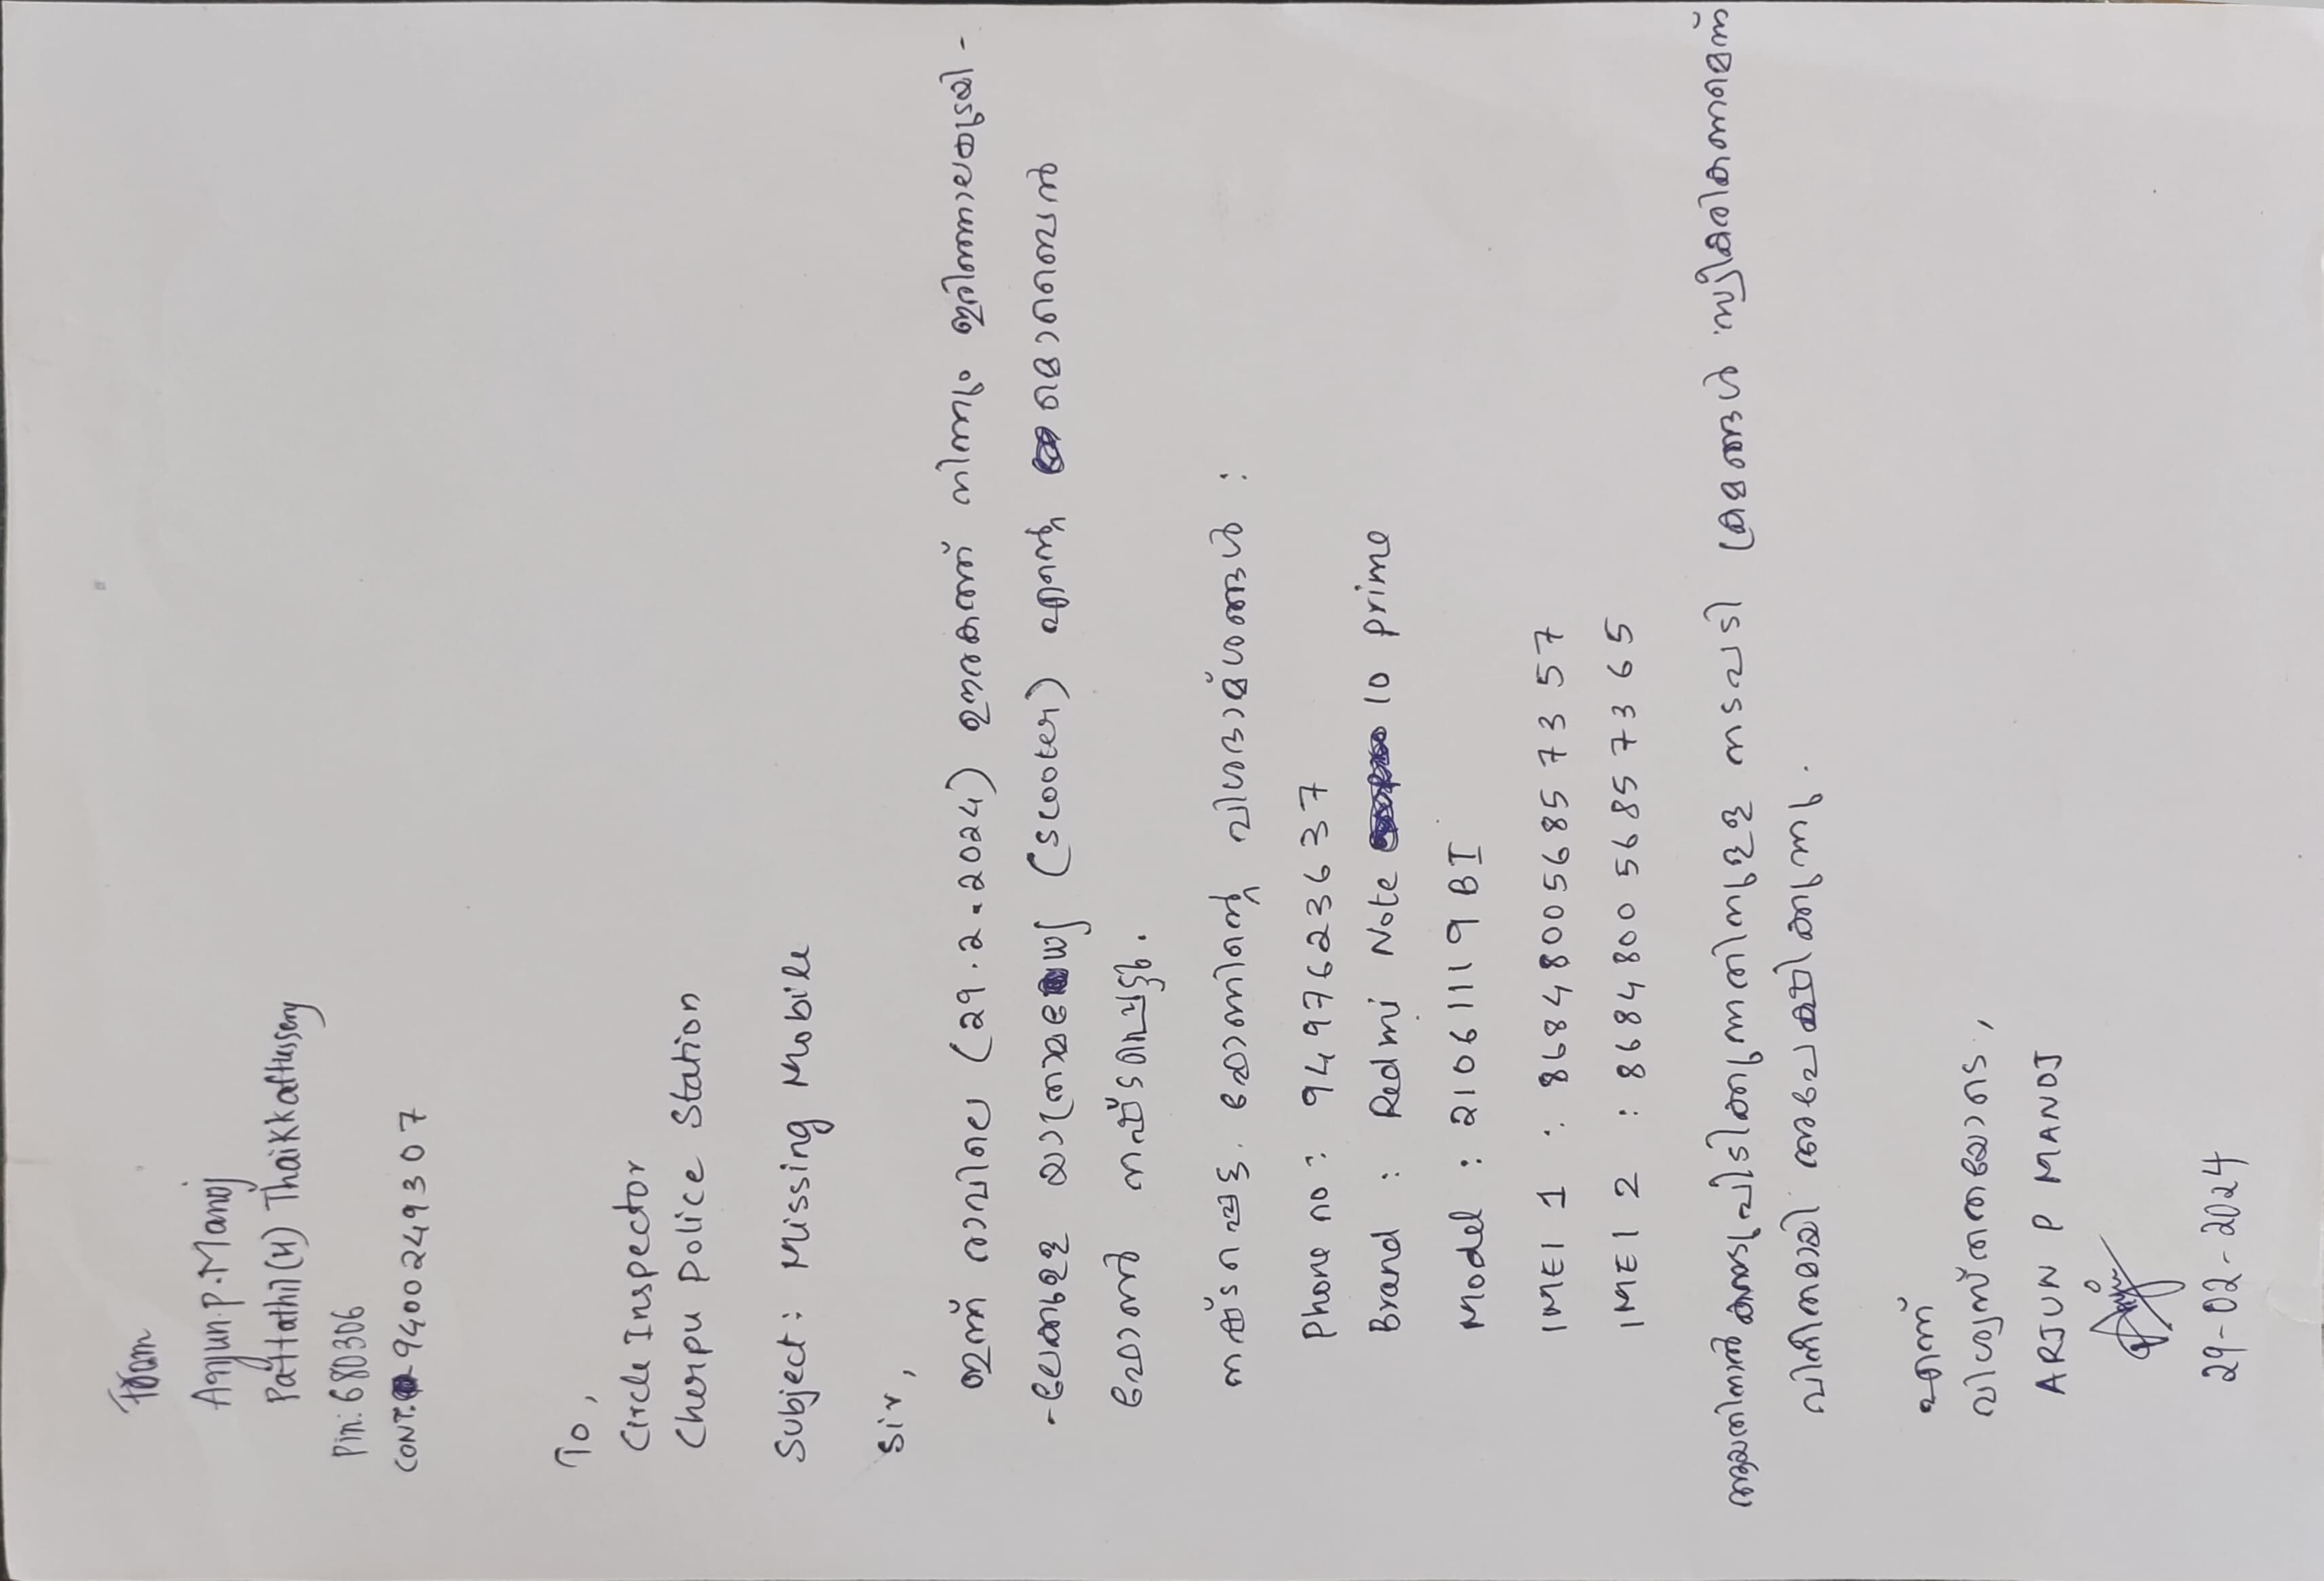 From
Arjun.P.Manoj
Pattathil (H) Thaikkattussery
Pin: 680306
CONT. 9400249307
To,
Circle Inspector
Cherpu Police Station
Subject: Missing Mobile
Sir,
ഇന്ന് രാവിലെ (29.2.2024) ഊരകത്ത് നിന്നും ഇരിഞ്ഞാലകുടയി-
-ലേക്കുള്ള യാത്രാമദ്ധ്യേ (Scooter) എന്റെ മൊബൈൽ
ഫോൺ നഷ്ടപ്പെട്ടു.
നഷ്ടപ്പെട്ട ഫോണിന്റെ വിശദാംശങ്ങൾ :
Phone no : 9497623637
Brand : Redmi Note 10 prime
Model : 21061119BI
IMEI 1 : 868480056857357
IMEI 2 : 868480056857365
ആയതിനാൽ കണ്ടുപിടിക്കുന്നതിനുള്ള നടപടി ക്രമങ്ങൾ സ്വീകരികണമെന്ന്
വിനീതമായി അപേക്ഷിക്കുന്നു.
എന്ന്
വിശ്വസ്തതയോടെ,
ARJUN P MANOJ
Arjun
29-02-2024